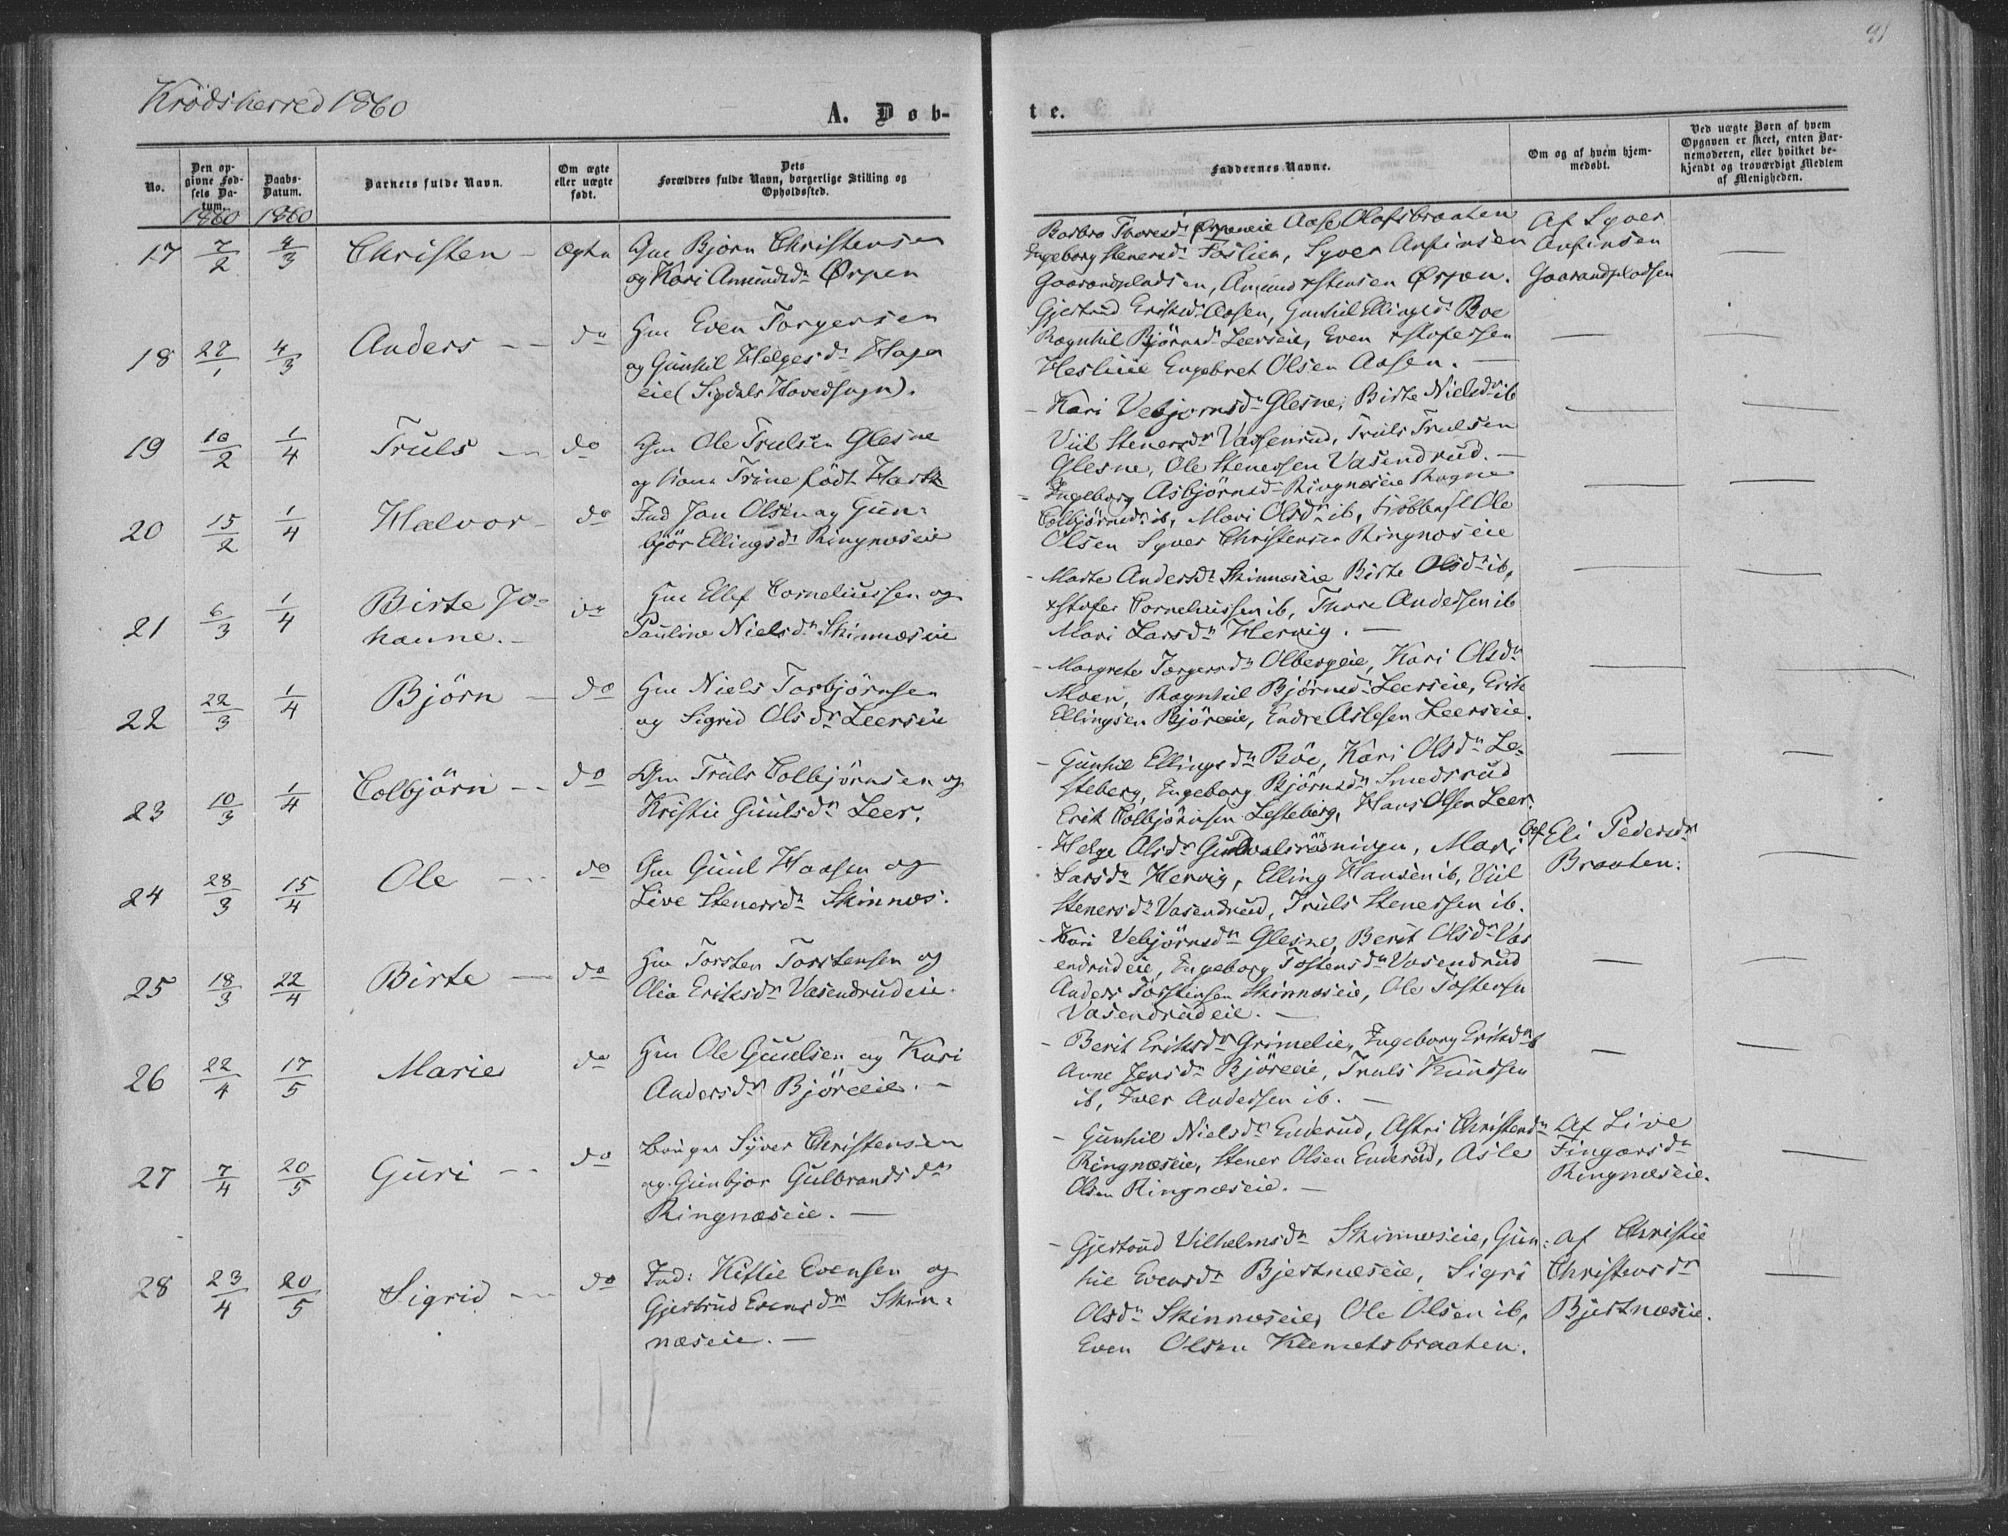 91
Krödsherred 1860
A. Døb-
te.
No.
Den opgivne Fødsels Datum.
Daabs-Datum.
Barnets fulde Navn.
Om ægte eller uægte født.
Dets Forældres fulde Navn, borgerlige Stilling og Opholdssted.
Faddernes Navne.
Om og af hvem hjemmedøbt.
Ved uægte Børn af hvem Opgaven er skeet, enten Barnemoderen, eller hvilket bekjendt og troværdigt Medlem af Menigheden.
1860 1860
17 7/2 4/3 Christen – Ægte
Gm Bjørn Christensen
og Kari Amundsdr Ørpen
Barbro Thoresdr Ørpeneie Aase Olafsbraaten
Ingeborg Stenersdr Foslien, Syver Anfinsen
Gaarandpladsen, Amund Xstensen Ørpen.
Af Syver
Anfinsen
Gaarandpladsen
18 27/1 4/3 Anders – – do
Hm Even Torgersen
og Gunhil Helgesdr Haga
eie (Sigdals Hovedsogn).
Gjertrud Eriksdr Aasen, Gunhil Ellingsdr Boe
Ragnhil Bjørnsdr Leerseie, Even Xstofersen
Hesliie Engebret Olsen Aasen. –
19 10/2 1/4 Truls – do
Gm Ole Trulsen Glesne
og Kone Trine født Hartz
– Kari Vebjornsdr Glesne, Birte Nielsdr ib
Viil Stenersdr Vassenrud, Truls Trulsen
Glesne, Ole Stenersen Vasendrud. –
20 15/2 1/4 Halvor – do
Ind Jon Olsen og Gun-
bjør Ellingsdr Ringnæseie
– Ingeborg Asbjørnsdr Ringnæseie Ragne
Colbjørnsdr ib, Mari Olsdr ib, Ole
Olsen Syver Christensen Ringnæseie
21 6/3 1/4 Birte Jo-
hanne. – do
Hm Ellef Corneliussen og
Pauline Nielsdr Skinnæseie
– Marte Andersdr Skinnæseie Birte Olsdr ib,
Xstofer Corneliussen ib, Thore Andersen ib
Mari Larsdr Hervig. –
22 22/3 1/4 Bjørn – do
Hm Niels Torbjørnsen
og Sigrid Olsdr Leerseie
– Margrete Torgersdr Olbergeie, Kari Olsdr
Moen, Ragnhil Bjørnsdr Leerseie, Erik
Ellingsen Bjøreeie, Endre Aslesen Leerseie.
23 10/3 1/4 Colbjörn – – do
Gm Truls Colbjørnsen og
Kristie Guulsdr Leer.
– Gunhil Ellingsdr Böe, Kari Olsdr Le-
steberg, Ingeborg Bjørnsdr Smedsrud
Erik Colbjørnsen Lesteberg, Hans Olsen Leer.
24 28/3 15/4 Ole – – do
Gm Guul Hansen og
Live Stenersdr Skinnes.
– Helge Olsdr Mari
Larsdr Hervig, Elling Hansen ib, Viil
Stenersdr Vasendrud, Truls Stenersen ib.
af Eli Pedersdr
Braaten.
25 18/3 22/4 Birte – do
Hm Torsten Torstensen og
Olia Eriksdr Vasendrudeie.
– Kari Vebjørnsdr Glesne, Berit Olsdr Vas
endrudeie, Ingeborg Tostensdr Vasendrud
Anders Torstensen Skinnæseie, Ole Tostensen
Vasendrudeie. –
26 22/4 17/5 Marie do
Hm Ole Guulsen og Kari
Andersdr Björeeie. –
– Berit Eriksdr Grimelie, Ingeborg Eriksdr ib
Anne Jensdr Björeeie, Truls Knudsen
ib, Iver Andersen ib. –
27 7/4 20/5 Guri – – do
Syver Christensen
og Gunbjør Gulbrandsdr
Ringnæseie. –
– Gunhil Nielsdr Enderud, Astri Christensdr
Ringnæseie, Stener Olsen Enderud, Asle
Olsen Ringnæseie. –
Af Live
Fingarsdr
Ringnæseie.
28 23/4 20/5 Sigrid – – do
Ind: Kittil Evensen og
Gjertrud Evensdr Skin-
næseie. –
– Gjertrud Vilhelmsdr Skinnæseie, Gun-
hil Evensdr Bjertnæseie, Sigri
Olsdr Skinnæseie, Ole Olsen ib,
Even Olsen Klemetsbraaten.
af Christie
Christensdr
Bjertnæseie.